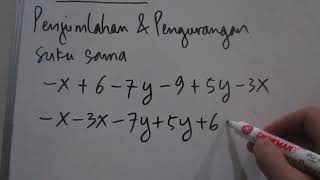 Penjumlahan & Pengurangan
suku sama
-x + 6 - 7y - 9 + 5y - 3x
-x - 3x - 7y + 5y + 6
SNOWMAN